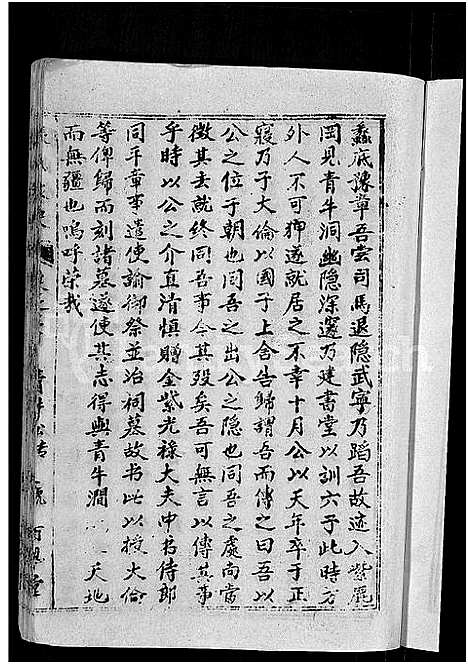 蠡底豫章吾尝司馬退隐武宁乃蹈吾故迹入紫鹿
岡見青牛洞幽隐深邃乃建書堂以訓六子此時方
外人不可狎遂就居之不幸十月公以天年卒于正
寝乃子大倫以國子上舍告歸謂吾而傳之曰吾以
公之位于朝也同吾之出公之隐也同吾之處向當
徴其去就終同吾事今其殁矣吾可無言以傳其事
乎時以公之介直清慎贈金紫光禄大夫中書侍郎
同平章事遣使諭御祭並治祠墓故书此以授大倫
等俾歸而刻諸墓邃使其志得與青牛澗 天地
而無疆也嗚呼荣哉